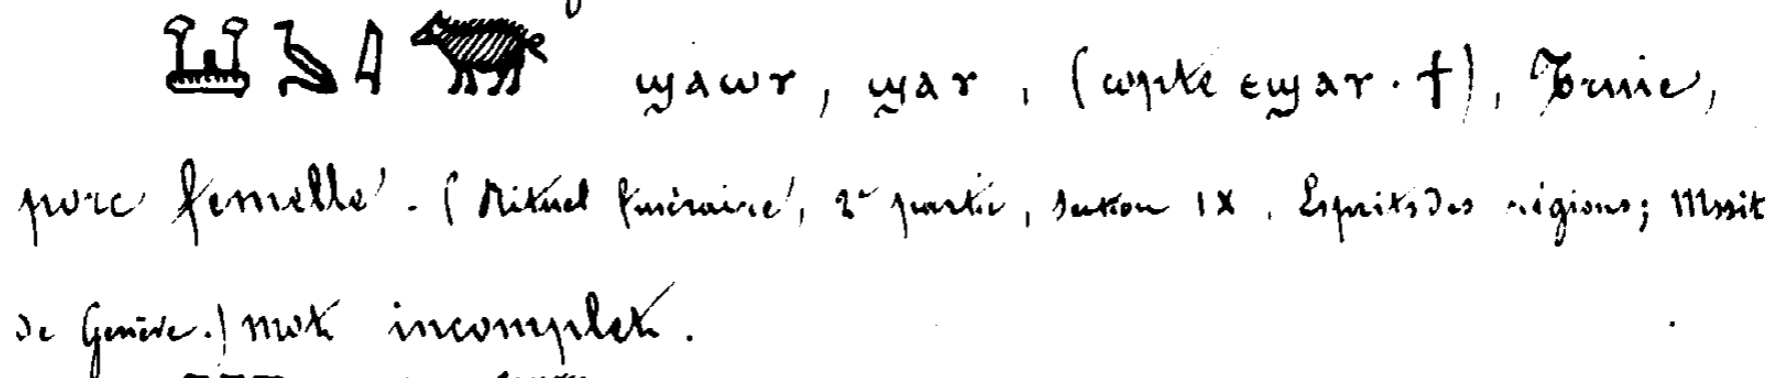 𓆷𓄿𓇋𓃟 ϣⲁⲱⲩ, ϣⲁⲩ, (copte ⲉϣⲁⲩ. ϯ), Truie,
porc femelle. (Rituel funéraire, 2e partie, Section IX. Esprits des régions; Mssit
de Genève.) mot incomplet.